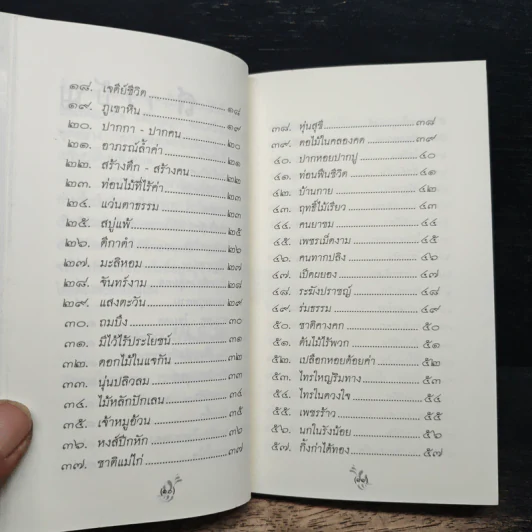 ๑๘. เจดีย์ชีวิต ๑๘
๑๙. ภูเขาหิน ๑๙
๒๐. ปากกา - ปากคน ๒๐
๒๑. อาภรณ์ล้ำค่า ๒๑
๒๒. สร้างตึก - สร้างคน ๒๒
๒๓. ท่อนไม้ที่ไร้ค่า ๒๓
๒๔. แว่นตาธรรม ๒๔
๒๕. สบู่แพ้ ๒๕
๒๖. ตีกาดำ ๒๖
๒๗. มะลิหอม ๒๗
๒๘. จันทร์งาม ๒๘
๒๙. แสงตะวัน ๒๙
๓๐. ถมบึง ๓๐
๓๑. มีไว้ไร้ประโยชน์ ๓๑
๓๒. ดอกไม้ในแจกัน ๓๒
๓๓. นุ่นปลิวลม ๓๓
๓๔. ไม้หลักปักเลน ๓๔
๓๕. เจ้าหมูอ้วน ๓๕
๓๖. หงส์ปีกหัก ๓๖
๓๗. ชาติแม่ไก่ ๓๗
๓๘. ทุ่นสุขี ๓๘
๓๙. ดอไม้ในคลองคด ๓๙
๔๐. ปากหอยปากปู ๔๐
๔๑. ท่อนฟืนชีวิต ๔๑
๔๒. บ้านกาย ๔๒
๔๓. ฤทธิ์ไม้เรียว ๔๓
๔๔. คนยาขม ๔๔
๔๕. เพชรเม็ดงาม ๔๕
๔๖. คนทากปลิง ๔๖
๔๗. เป็ดผยอง ๔๗
๔๘. ระฆังปราชญ์ ๔๘
๔๙. ร่มธรรม ๔๙
๕๐. ชาติคางคก ๕๐
๕๑. คันไม้ไร้พวก ๕๑
๕๒. เปลือกหอยด้อยค่า ๕๒
๕๓. ไทรใหญ่ริมทาง ๕๓
๕๔. ไทรในดวงใจ ๕๔
๕๕. เพชรร้าว ๕๕
๕๖. นกในรังน้อย ๕๖
๕๗. กิ้งก่าได้ทอง ๕๗